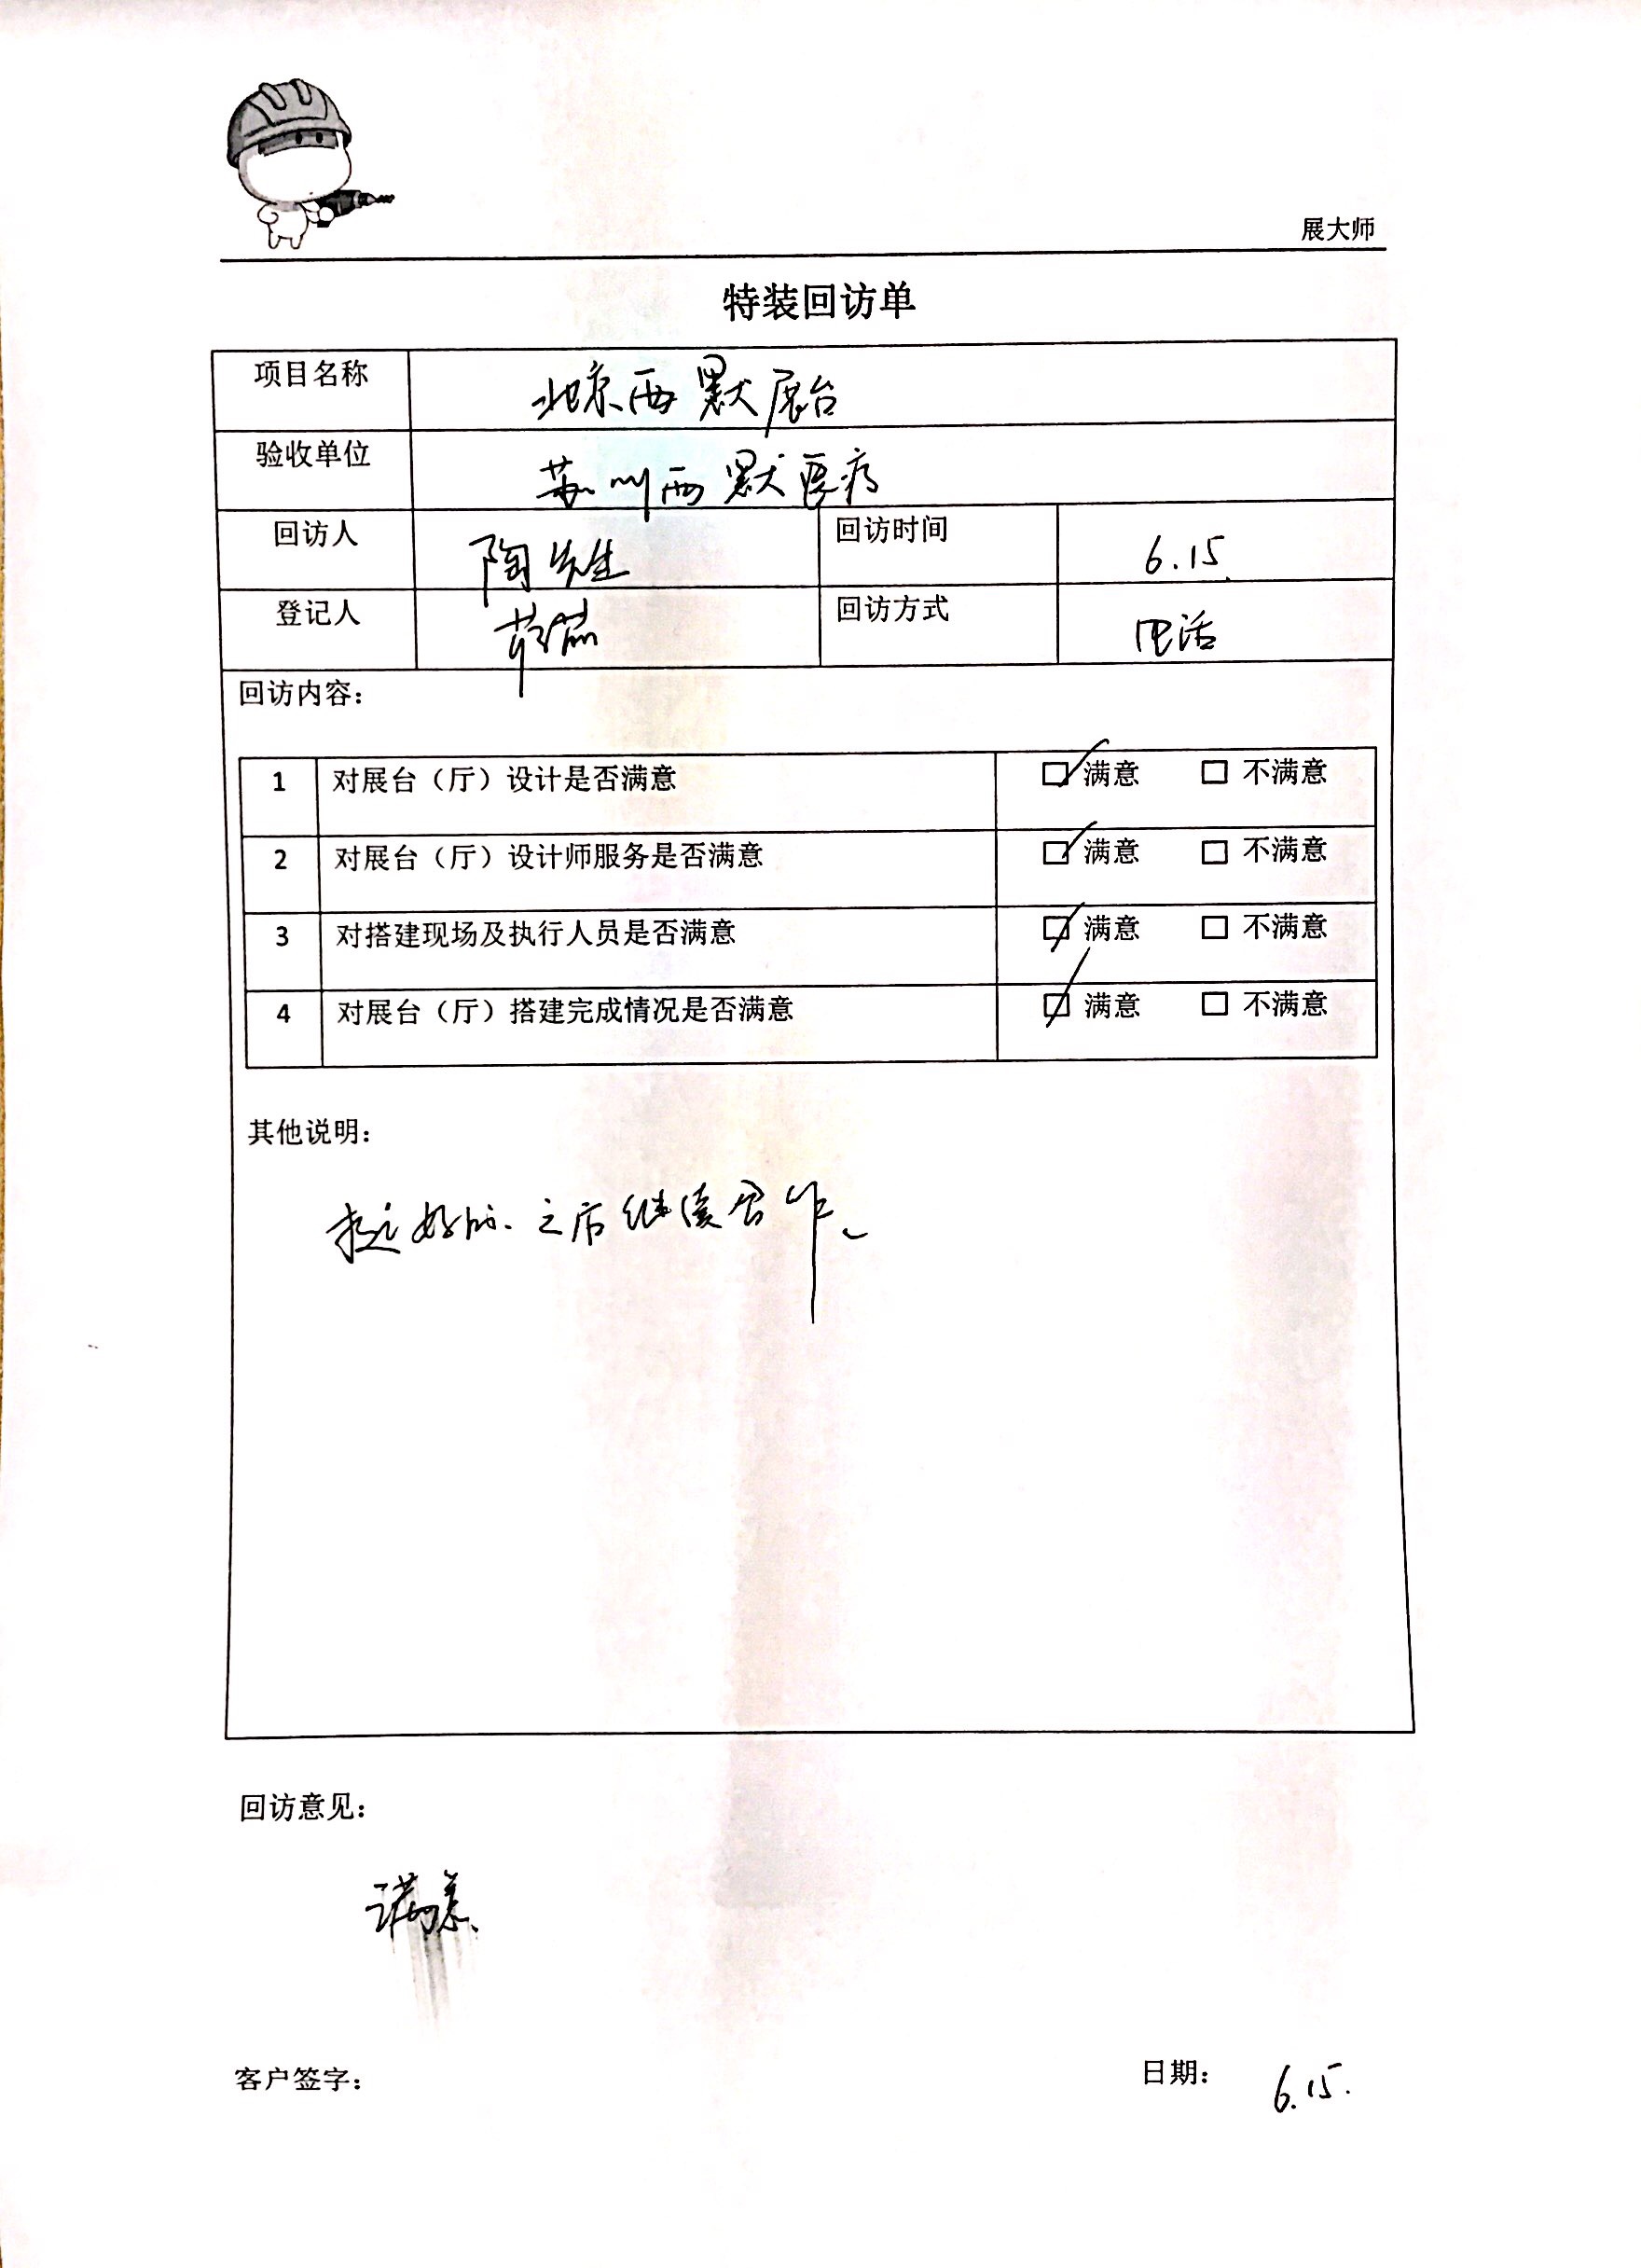 展大师
特装回访单
项目名称 北京西默展台
验收单位 苏州西默医疗
回访人 陶先生 回访时间 6.15.
登记人 回访方式 电话
回访内容：
1 对展台（厅）设计是否满意 ☑ 满意 □ 不满意
2 对展台（厅）设计师服务是否满意 ☑ 满意 □ 不满意
3 对搭建现场及执行人员是否满意 ☑ 满意 □ 不满意
4 对展台（厅）搭建完成情况是否满意 ☑ 满意 □ 不满意
其他说明：
挺好的、之后继续合作、
回访意见：
满意、
客户签字： 日期： 6.15.